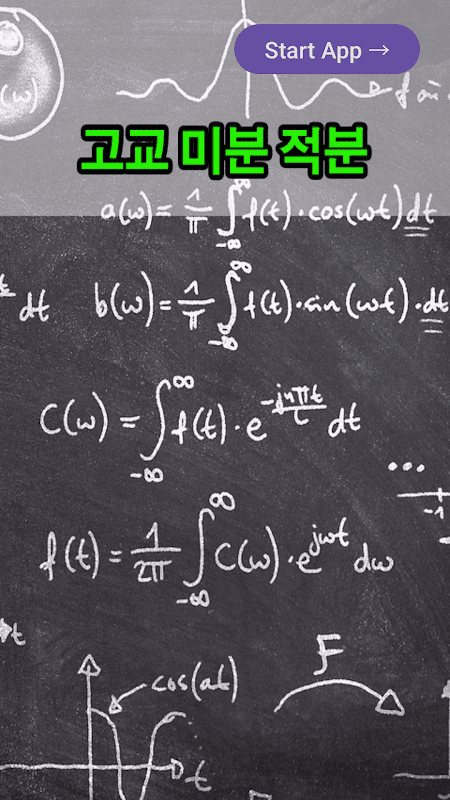 Start App →
(w)
고교 미분 적분
a(w) = 1/π ∫_{-∞}^{∞} f(t)·cos(wt) dt
dt
b(w) = 1/π ∫_{-∞}^{∞} f(t)·sin(wt)·dt
C(w) = ∫_{-∞}^{∞} f(t)·e^{-jnπt/L} dt
...
-1
f(t) = 1/2π ∫_{-∞}^{∞} C(w)·e^{jwt} dw
t
F
cos(at)
t